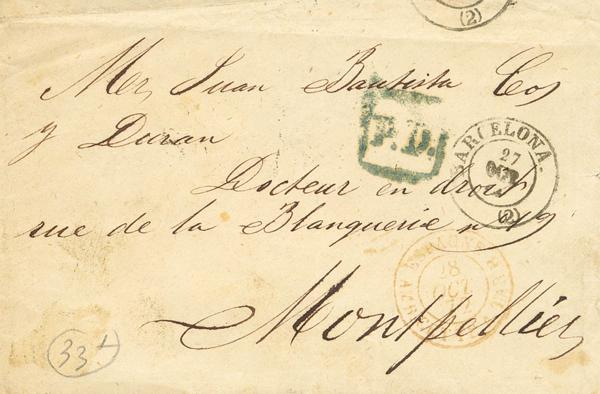 (2)
Mr, Juan Bautista Cos
y Duran
P.D.
BARCELONA.
27
OCT
(2)
Docteur en droit
rue de la Blanquerie n 19
ESPAGNE
OCT
Montpellier
33